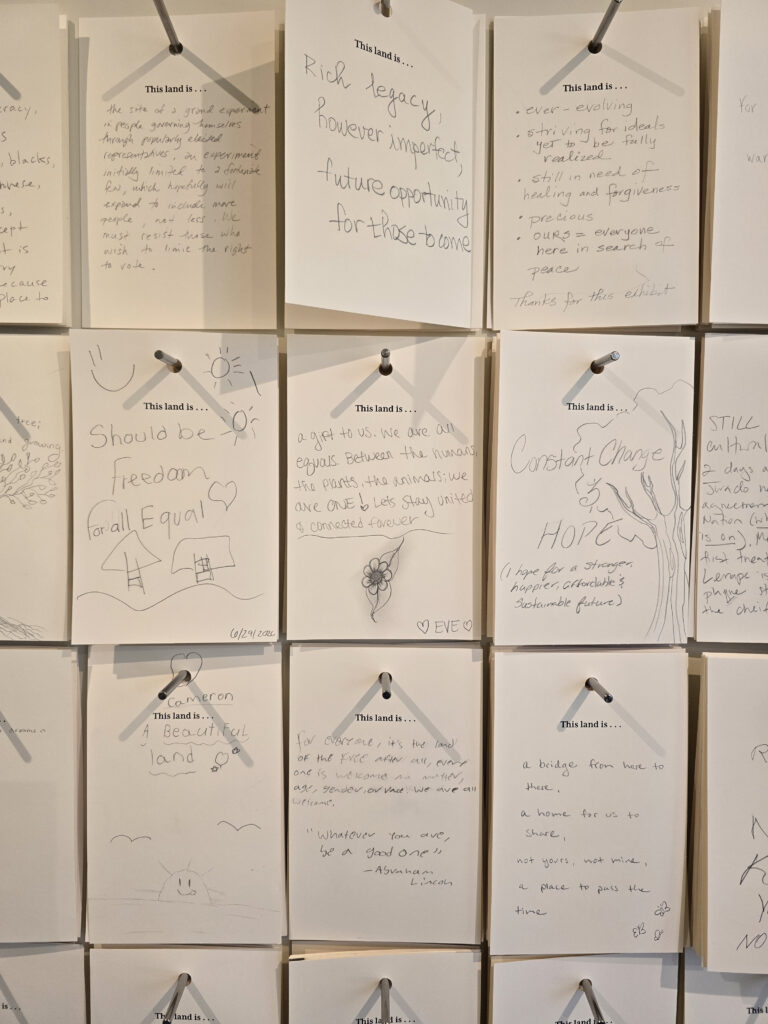 This land is . . .
the site of a grand experiment
in people governing themselves
through popularly elected
representatives, an experiment
initially limited to a fortunate
few, which hopefully will
expand to include more
people, not less. We
must resist those who
wish to limit the right
to vote.
This land is . . .
Rich legacy,
however imperfect,
future opportunity
for those to come
This land is . . .
• ever-evolving
• striving for ideals
yet to be fully
realized
• still in need of
healing and forgiveness
• precious
• OURS = everyone
here in search of
peace
Thanks for this exhibit
racy,
blacks,
nese,
cept
t is
ry
ecause
place to
for
war
This land is . . .
Should be
freedom
for all Equal
6/29/202
This land is . . .
a gift to us. We are all
equals between the humans,
the plants, the animals; we
are ONE! Lets stay united
& connected forever
♡ EVE ♡
This land is . . .
Constant Change
&
HOPE
(I hope for a stronger,
happier, affordable &
sustainable future)
tree;
nd growing
STILL
cultural
2 days a
Nation (
is on). M
first treat
Lenape is
plaque st
the chief
Cameron
This land is . . .
A Beautiful
land
This land is . . .
For everyone, it's the land
of the free after all, every
one is welcome no matter,
age, gender, or race. We are all
welcome.
"Whatever you are,
be a good one"
- Abraham
Lincoln
This land is . . .
a bridge from here to
there,
a home for us to
share,
not yours, not mine,
a place to pass the
time
EB
NO
is . . .
This land is . . .
This land is . . .
This land is . . .
This l